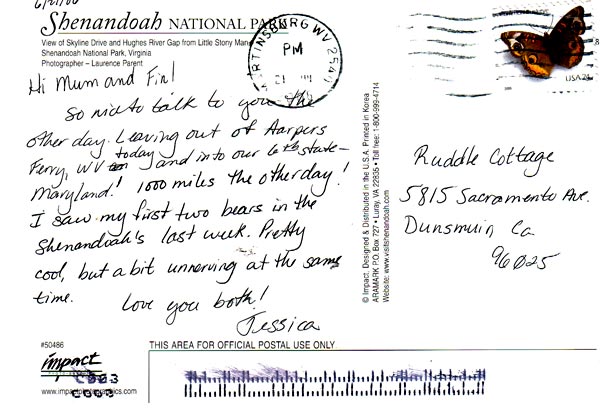 Shenandoah NATIONAL PARK
View of Skyline Drive and Hughes River Gap from Little Stony Man
Shenandoah National Park, Virginia
Photographer – Laurence Parent
MARTINSBURG WV 2540
PM
21
USA 24
Hi Mum and Fin!
So nice to talk to you the
other day. Leaving out of Harpers
Ferry, WV today and into our 6th state-
Maryland! 1000 miles the other day!
I saw my first two bears in the
Shenandoah's last week. Pretty
cool, but a bit unnerving at the same
time.
Love you both!
Jessica
© Impact. Designed & Distributed in the U.S.A. Printed in Korea
ARAMARK P.O. Box 727 • Luray, VA 22835 • Toll free: 1-800-999-4714
Website: www.visitshenandoah.com
Ruddle Cottage
5815 Sacramento Ave.
Dunsmuir, Ca
96025
#50486
impact
C003
C003
www.impactphotographics.com
THIS AREA FOR OFFICIAL POSTAL USE ONLY